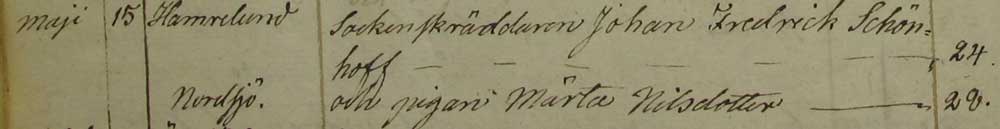 Maji 15 Hamrelund Sockenskräddaren Johan Fredrick Schön=
hoff — — — — — — 24.
Nordsjö. och pigan Märta Nilsdotter — 28.